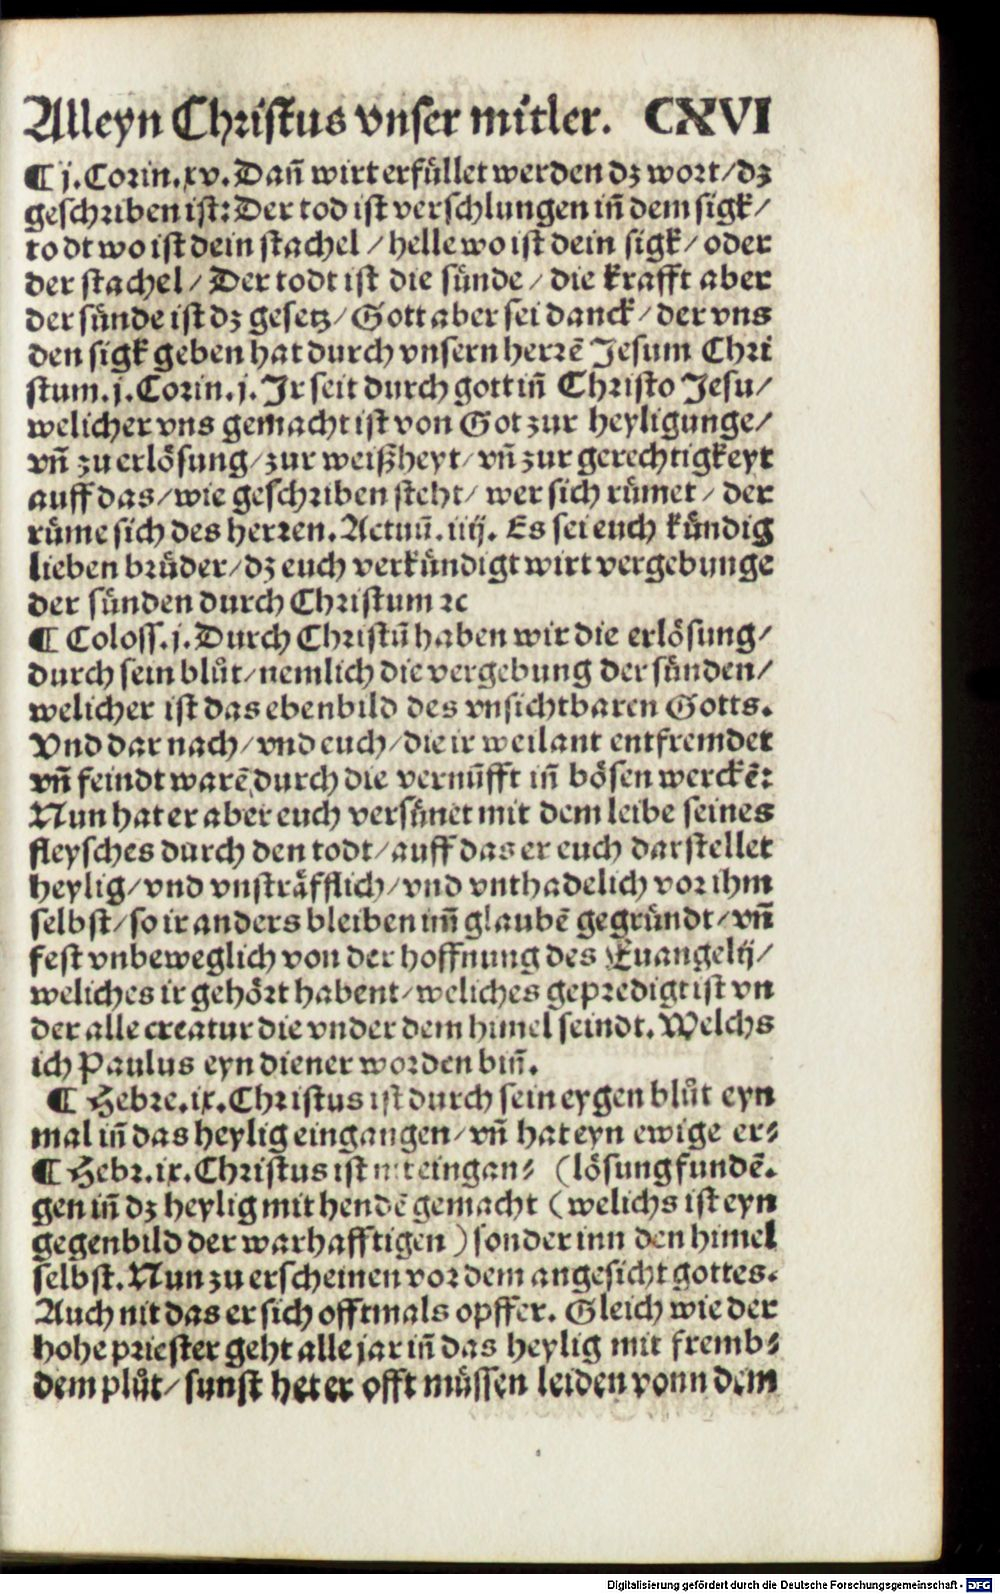 Alleyn Christus vnser mitler. CXVI
¶ j. Corin. xv. Dañ wirt erfüllet werden dz wort/dz
geschriben ist: Der tod ist verschlungen iñ dem sigk/
todt wo ist dein stachel/helle wo ist dein sigk/oder
der stachel/Der todt ist die sünde/die krafft aber
der sünde ist dz gesetz/Gott aber sei danck/der vns
den sigk geben hat durch vnsern herrē Jesum Chri
stum. j. Corin. j. Jr seit durch gott iñ Christo Jesu/
welicher vns gemacht ist von Got zur heyligunge/
vñ zu erlösung/zur weißheyt/vñ zur gerechtigkeyt
auff das/wie geschriben steht/wer sich rümet/der
rüme sich des herren. Actuū. iiij. Es sei euch kündig
lieben brüder/dz euch verkündigt wirt vergebunge
der sünden durch Christum ꝛc
¶ Coloss. j. Durch Christū haben wir die erlösung/
durch sein blůt/nemlich die vergebung der sünden/
welicher ist das ebenbild des vnsichtbaren Gotts.
Vnd dar nach/vnd euch/die ir weilant entfremdet
vñ feindt warē durch die vernūfft iñ bösen werckē:
Nun hat er aber euch versünet mit dem leibe seines
fleysches durch den todt/auff das er euch darstellet
heylig/vnd vnsträfflich/vnd vnthadelich vor ihm
selbst/so ir anders bleiben im̄ glaubē gegründt/vñ
fest vnbeweglich von der hoffnung des Euangelij/
weliches ir gehört habent/weliches gepredigt ist vn
der alle creatur die vnder dem himel seindt. Welchs
ich Paulus eyn diener worden biñ.
¶ Hebre. ix. Christus ist durch sein eygen blůt eyn
mal iñ das heylig eingangen/vñ hat eyn ewige er⸗
¶ Hebr. ix. Christus ist nit eingan⸗ (lösung fundē.
gen iñ dz heylig mit hendē gemacht (welichs ist eyn
gegenbild der warhafftigen) sonder inn den himel
selbst. Nun zu erscheinen vor dem angesicht gottes.
Auch nit das er sich offtmals opffer. Gleich wie der
hohe priester geht alle jar iñ das heylig mit fremb⸗
dem plůt/sunst het er offt müssen leiden vonn dem
Digitalisierung gefördert durch die Deutsche Forschungsgemeinschaft - DFG